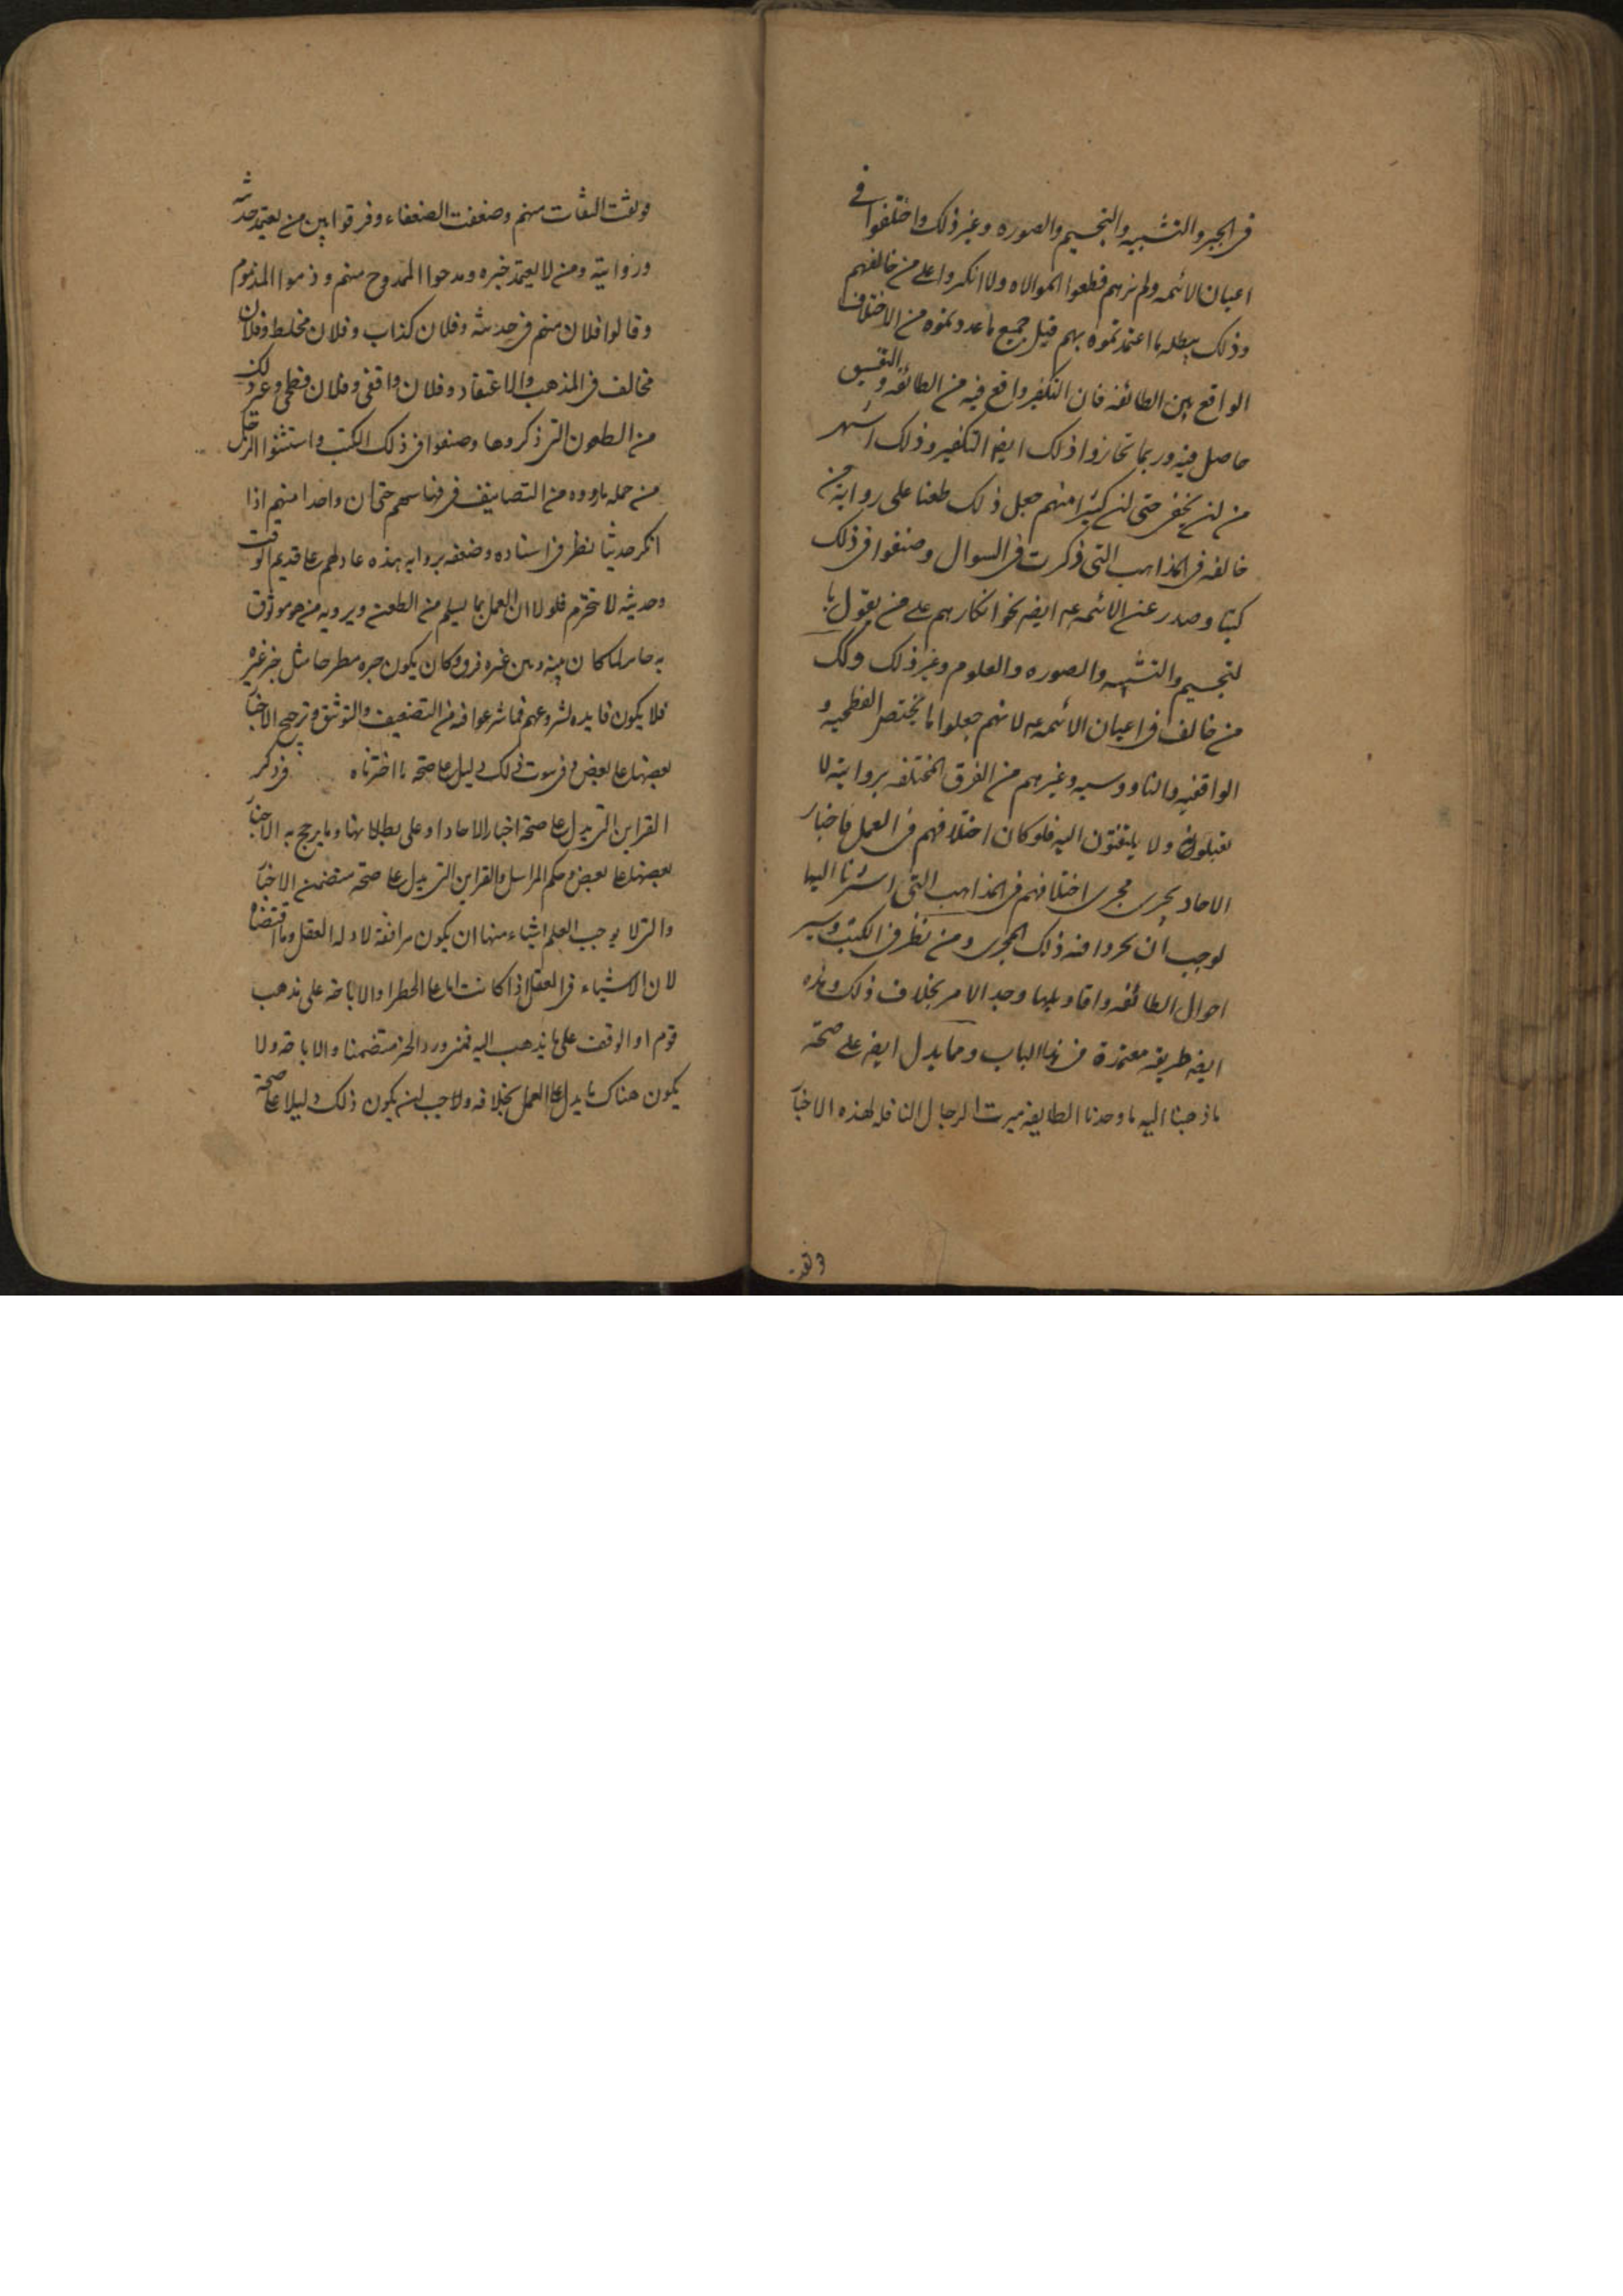 في الجبر والتشبيه والتجسيم والصوره وغير ذلك واختلفوا في
اعيان الائمه ولم نرهم قطعوا الموالاه ولا انكروا على من خالفهم
وذلك يبطل ما اعتمدتموه بهم قيل جميع ما عددتموه من الاختلاف
الواقع بين الطائفه فان التكفير واقع فيه من الطائفه والتفسيق
حاصل فيه وربما تجاوزوا ذلك ايضا التكفير وذلك اشهر
من ان يخفى حتى ان كثيرا منهم جعل ذلك طعنا على رواية من
خالفه في المذاهب التي ذكرت في السوال وصنفوا في ذلك
كتبا وصدر عن الائمه ع ايضا نحو انكارهم على من يقول با
لتجسيم والتشبيه والصوره والعلوم وغير ذلك وكك
من خالف في اعيان الائمه ع لانهم جعلوا ما يختص الفطحيه و
الواقفيه والناووسيه وغيرهم من الفرق المختلفه بروايته لا
يقبلونه ولا يلتفتون اليه فلو كان اختلافهم في العمل باخبار
الاحاد يجرى مجرى اختلافهم في المذاهب التي اشرنا اليها
لوجب ان يجروا فيه ذلك المجرى ومن نظر في الكتب وسبر
احوال الطائفه واقاويلها وجد الامر بخلاف ذلك وهذه
ايضا طريقه معتمدة في هذا الباب ومما يدل ايضا على صحة
ما ذهبنا اليه ما وجدنا الطايفه ميزت الرجال الناقله لهذه الاخبا
وثقت
فوثقت الثقات منهم وضعفت الضعفاء وفرقوا بين من يعتمد حديثه
وروايته ومن لا يعتمد خبره ومدحوا الممدوح منهم وذموا المذموم
وقالوا فلان متهم في حديثه وفلان كذاب وفلان مخلط وفلان
مخالف في المذهب والاعتقاد وفلان واقفي وفلان فطحي وغير ذلك
من الطعون التي ذكروها وصنفوا في ذلك الكتب واستثنوا الرجل
من جمله ما رووه من التصانيف في فهارسهم حتى ان واحدا منهم اذا
انكر حديثا نظر في اسناده وضعفه بروايه هذه عادتهم على قديم الوقت
وحديثه لا تنخرم فلولا ان العمل بما يسلم من الطعن ويرويه من هو موثوق
به جايزا لما كان بينه وبين غيره فرق وكان يكون خبره مطرحا مثل خبر غيره
فلا يكون فايده لشروعهم فيما شرعوا فيه من التضعيف والتوثيق وترجيح الاخبا
بعضها على بعض وفي ثبوت ذلك دليل على صحه ما اخترناه في ذكر
القراين التي يدل على صحة اخبار الاحاد او على بطلانها وما يرجح به الاخبا
بعضها على بعض وحكم المراسل والقراين التي يدل على صحه متضمن الاخبا
والتي لا يوجب العلم اشياء منها ان يكون مرافقة لادله العقل وما اقتضاه
لان الاشياء في العقل اذا كانت اما على الحظر او الاباحه على مذهب
قوم او الوقف على ما يذهب اليه فمتى ورد الخبر متضمنا والاباحه ولا
يكون هناك ما يدل على العمل بخلافه ولا جب ان يكون ذلك دليلا على صحة